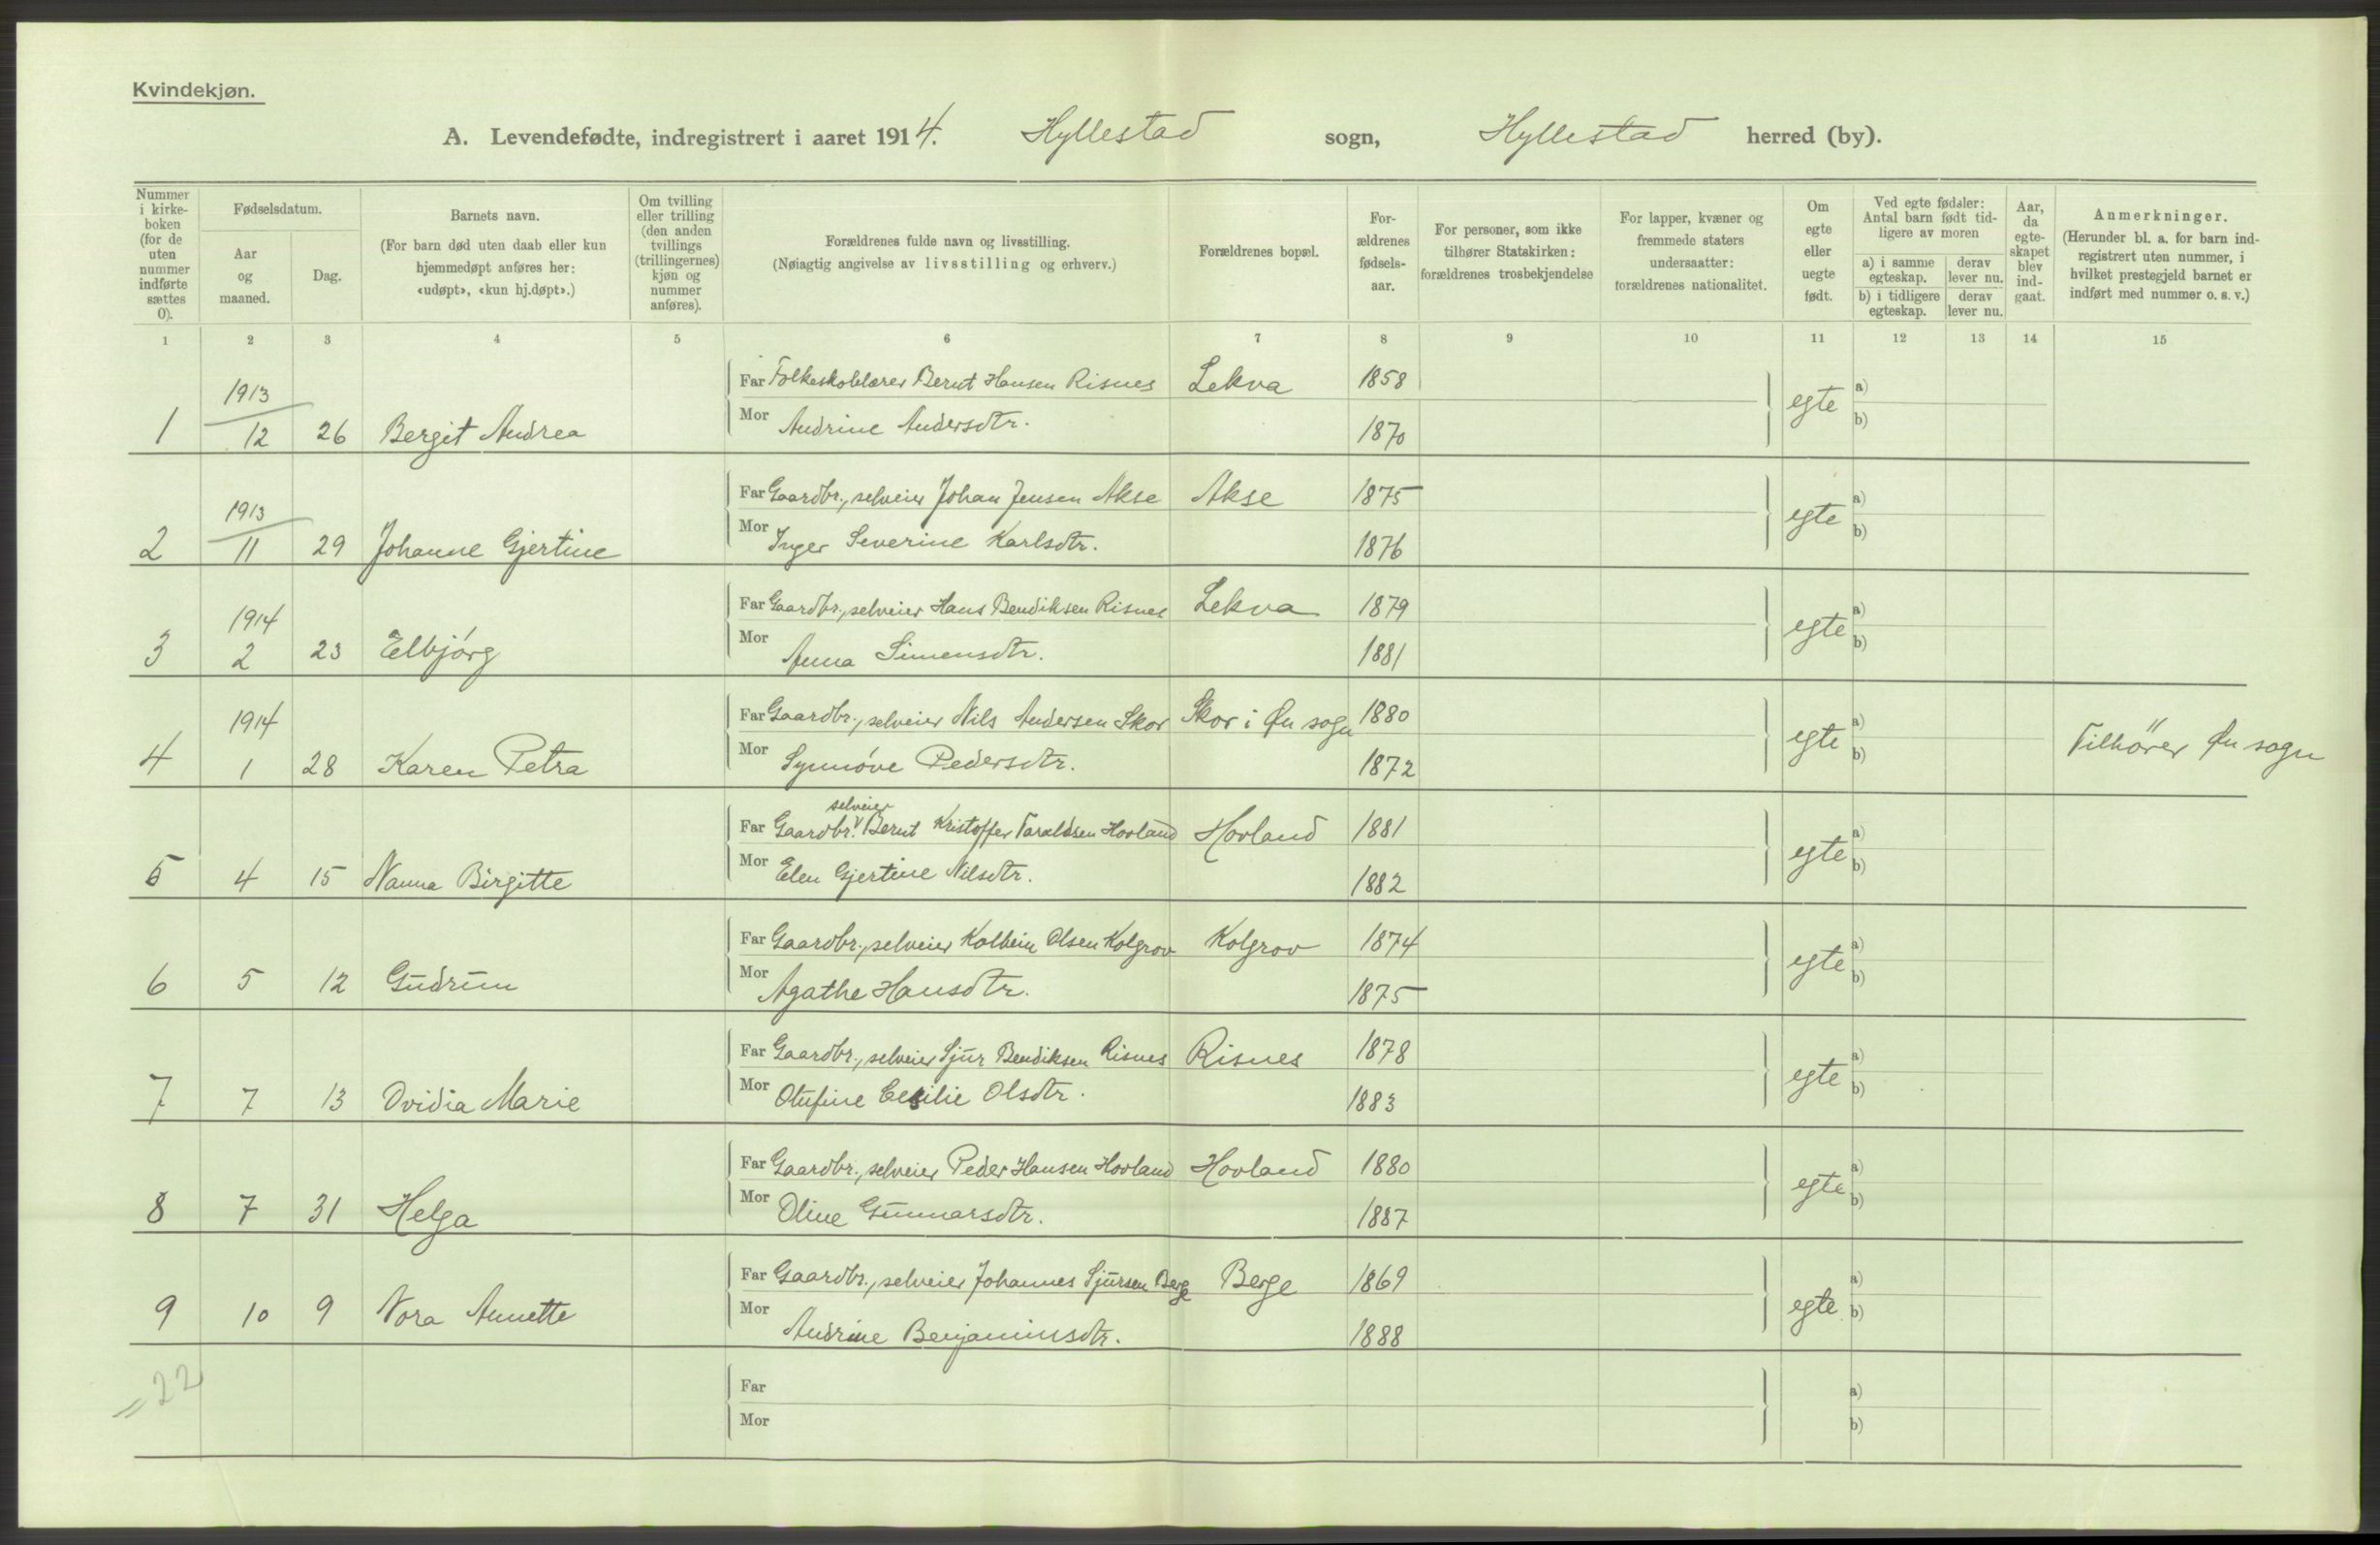 Kvindekjøn.
A. Levendefødte, indregistrert i aaret 1914. Hyllestad sogn, Hyllestad herred (by).
Nummer i kirkeboken (for de uten nummer indførte sættes 0).
Fødselsdatum.
Aar og maaned.
Dag.
Barnets navn.
(For barn død uten daab eller kun hjemmedøpt anføres her: «udøpt», «kun hj.døpt».)
Om tvilling eller trilling (den anden tvillings (trillingernes) kjøn og nummer anføres).
Forældrenes fulde navn og livsstilling.
(Nøiagtig angivelse av livsstilling og erhverv.)
Forældrenes bopæl.
For-ældrenes fødsels-aar.
For personer, som ikke tilhører Statskirken: forældrenes trosbekjendelse
For lapper, kvæner og fremmede staters undersaatter: forældrenes nationalitet.
Om egte eller uegte født.
Ved egte fødsler: Antal barn født tid-ligere av moren
a) i samme egteskap. derav lever nu.
b) i tidligere egteskap. derav lever nu.
Aar, da egte-skapet blev ind-gaat.
Anmerkninger.
(Herunder bl. a. for barn ind-registrert uten nummer, i hvilket prestegjeld barnet er indført med nummer o. s. v.)
1 2 3 4 5 6 7 8 9 10 11 12 13 14 15
1913 Far Folkeskolelærer Bernt Hansen Risnes Lekva 1858 a)
1 12 26 Bergit Andrea Mor Andrine Andersdtr. 1870 egte b)
1913 Far Gaardbr., selveier Johan Jensen Akse Akse 1875 a)
2 11 29 Johanne Gjertine Mor Inger Severine Karlsdtr. 1876 egte b)
1914 Far Gaardbr., selveier Hans Bendiksen Risnes Lekva 1879 a)
3 2 23 Elbjørg Mor Anna Simensdtr. 1881 egte b)
1914 Far Gaardbr., selveier Nils Andersen Skor Skor i Øn sogn 1880 a)
4 1 28 Karen Petra Mor Synnöve Pedersdtr. 1872 egte b) Tilhörer Øn sogn
selveier
Far Gaardbr. Bernt Kristoffer Taraldsen Hovland Hovland 1881 a)
5 4 15 Nanna Birgitte Mor Elen Gjertine Nilsdtr. 1882 egte b)
Far Gaardbr., selveier Kolbein Olsen Kolgrov Kolgrov 1874 a)
6 5 12 Gudrun Mor Agathe Hansdtr. 1875 egte b)
Far Gaardbr., selveier Sjur Bendiksen Risnes Risnes 1878 a)
7 7 13 Ovidia Marie Mor Olufine Cesilie Olsdtr. 1883 egte b)
Far Gaardbr., selveier Peder Hansen Hovland Hovland 1880 a)
8 7 31 Helga Mor Oline Gunnarsdtr. 1887 egte b)
Far Gaardbr., selveier Johannes Sjursen Berge Berge 1869 a)
9 10 9 Nora Annette Mor Andrine Benjaminsdtr. 1888 egte b)
=22 Far a)
Mor b)